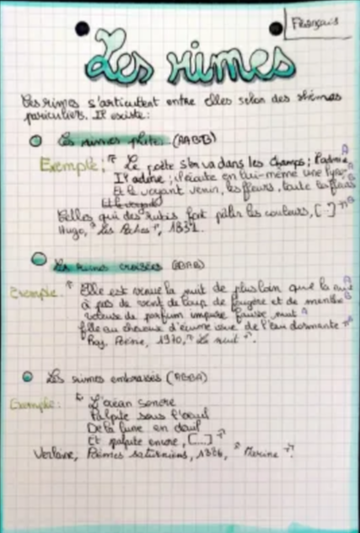 Français
Les rimes
Les rimes s'articulent entre elles selon des schémas
particuliers. Il existe :
Les rimes plates (AABB)
Exemple : " Le poète s'en va dans les champs ; il admire, A
Il adore ; il écoute en lui-même une lyre A
Et le voyant venir, les fleurs, toutes les fleurs B
Celles qui des rubis font pâlir les couleurs, [ ] " B
Hugo, "
Les rimes croisées (ABAB)
Exemple : " Elle est venue la nuit de plus loin que la nuit
à pas de vent de loup de fougère et de menthe
voleuse de parfum impure fausse nuit
fille aux cheveux d'écume issue de l'eau dormante "
1970, " La nuit ".
Les rimes embrassées (ABBA)
Exemple : " L'océan sonore
Palpite sous l'oeil
De la lune en deuil
Et palpite encore, [...] "
Verlaine, Poèmes saturniens, " Marine ".